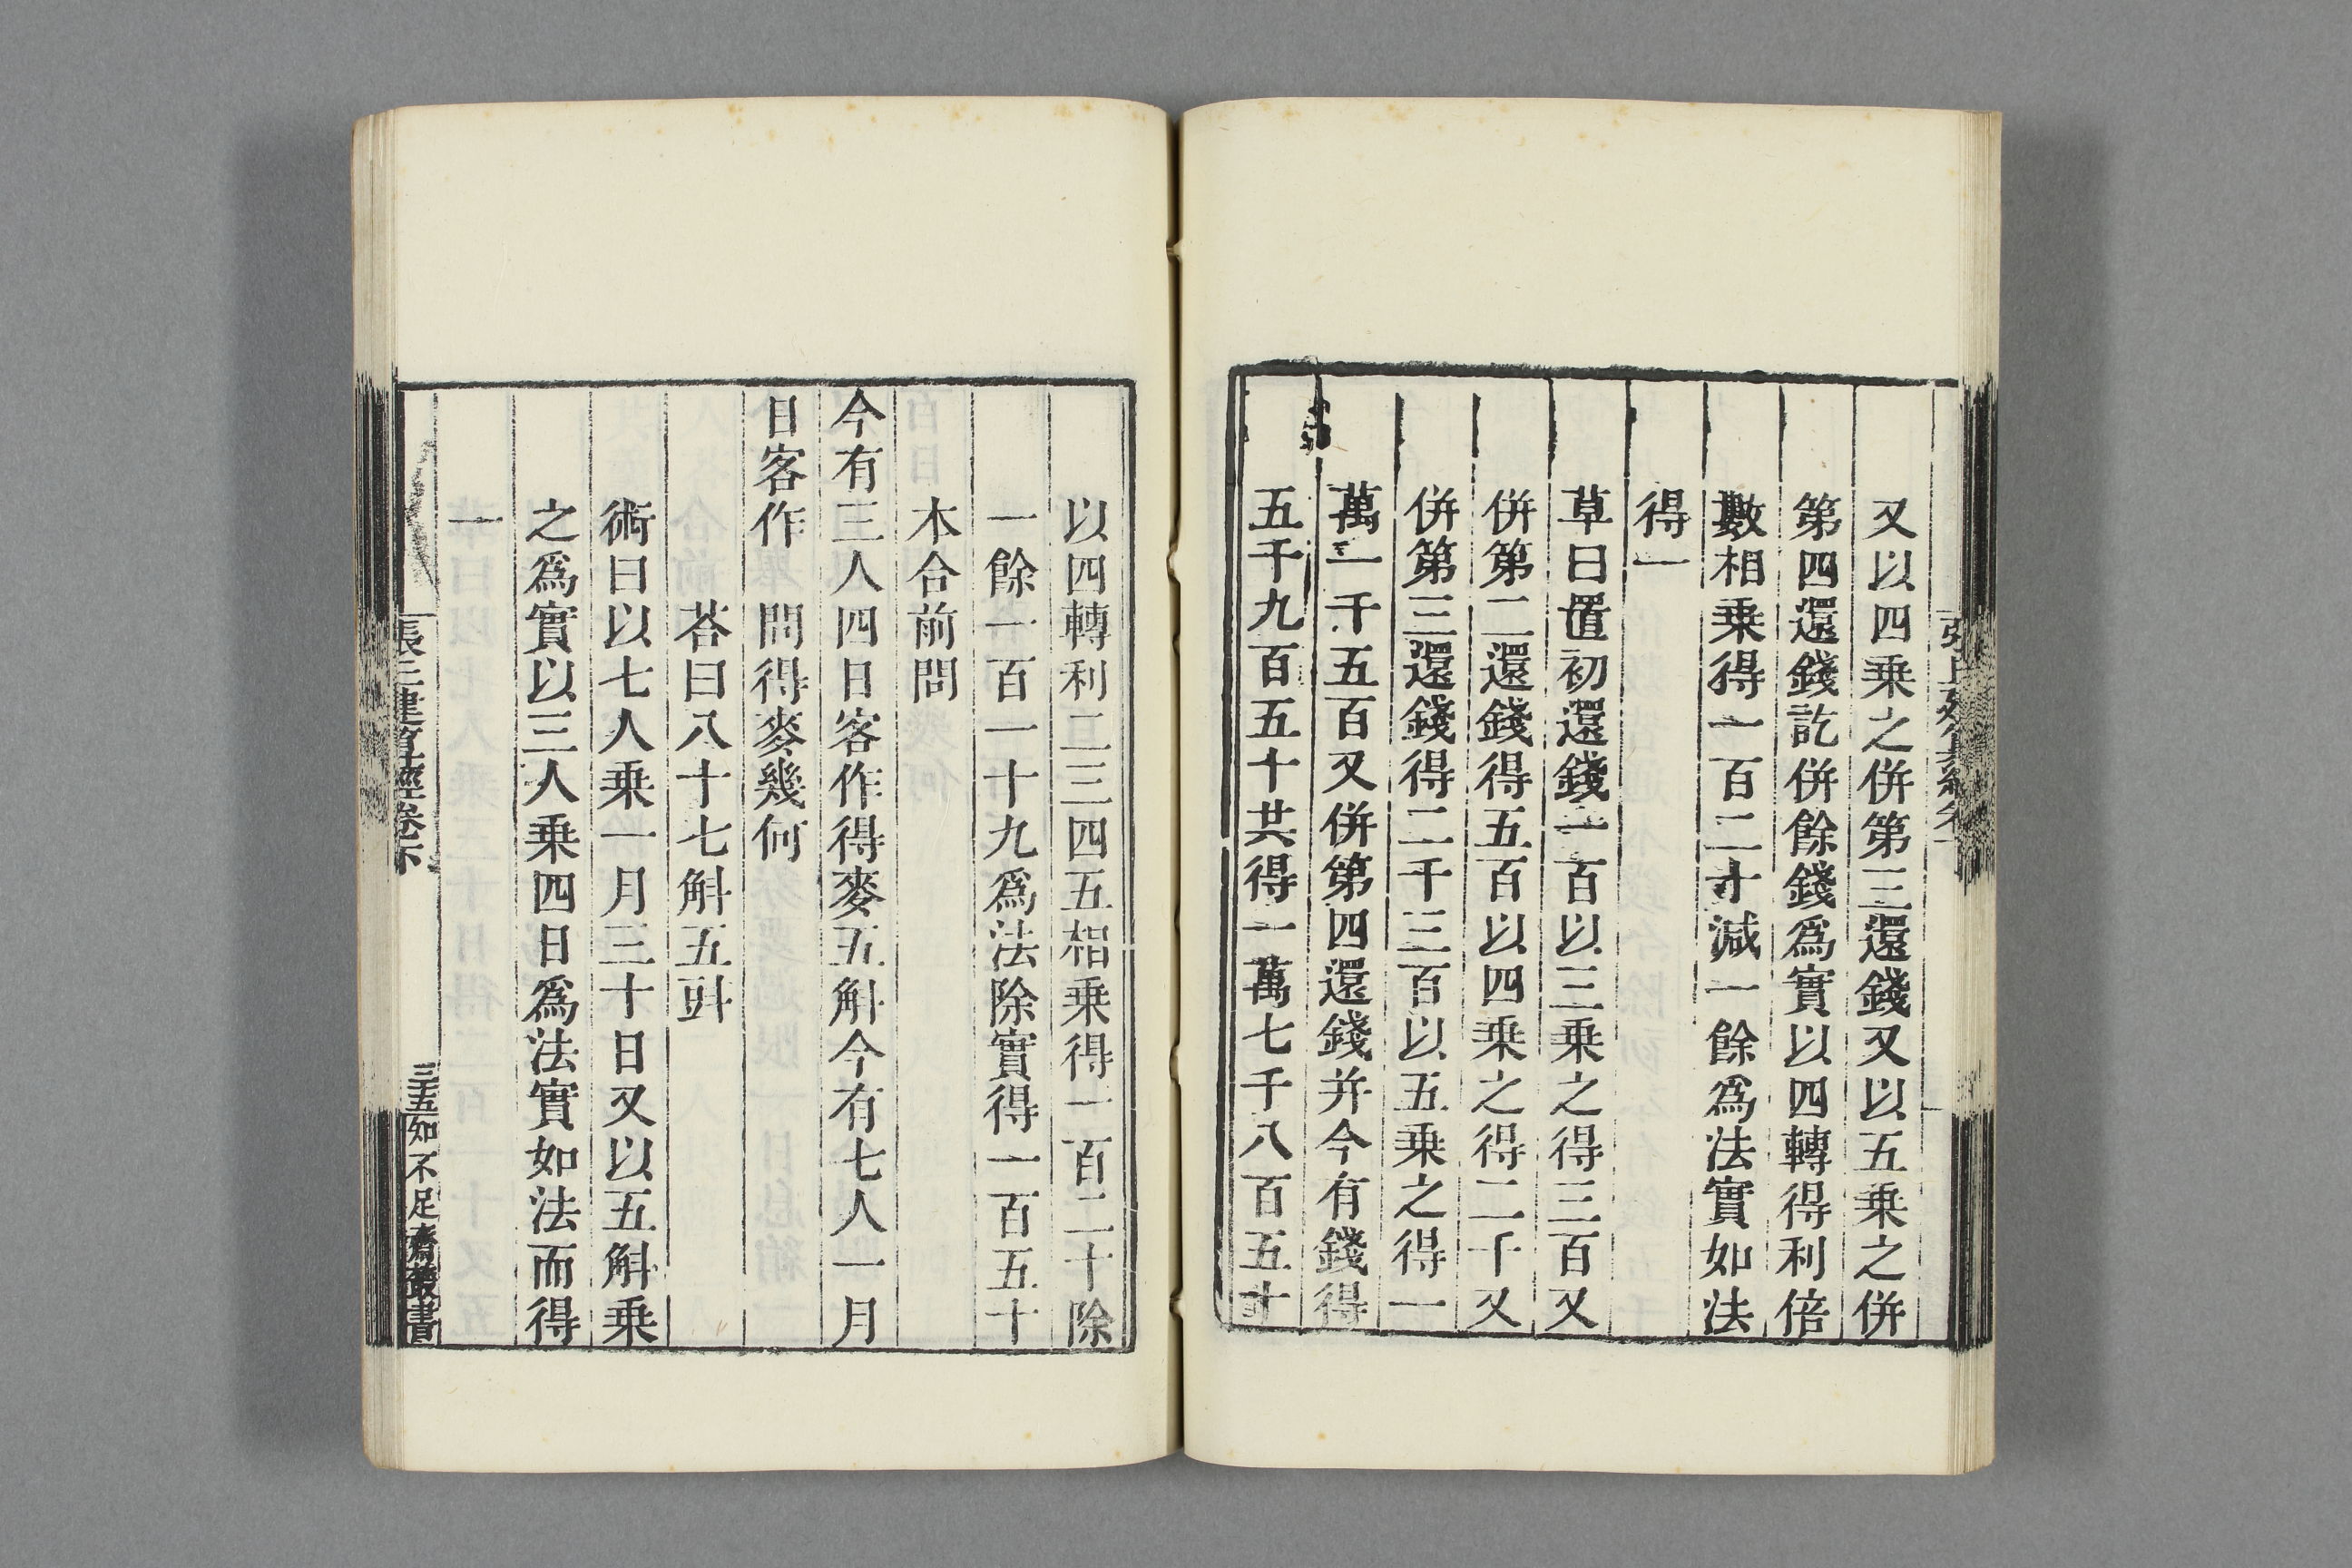 又以四乗之併第三還錢又以五乗之併
第四還錢訖併餘錢爲實以四轉得利倍
數相乗得一百二十減一餘爲法實如法
得一
草曰置初還錢一百以三乗之得三百又
併第二還錢得五百以四乗之得二千又
併第三還錢得二千三百以五乗之得一
萬一千五百又併第四還錢并今有錢得
五千九百五十共得一萬七千八百五十
以四轉利二三四五相乗得一百二十除
一餘一百一十九爲法除實得一百五十
本合前問
今有三人四日客作得麥五斛今有七人一月
日客作 問得麥幾何
荅曰八十七斛五㪷
術曰以七人乗一月三十日又以五斛乗
之爲實以三人乗四日爲法實如法而得
一
張丘建算經卷下
三五 知不足齋叢書